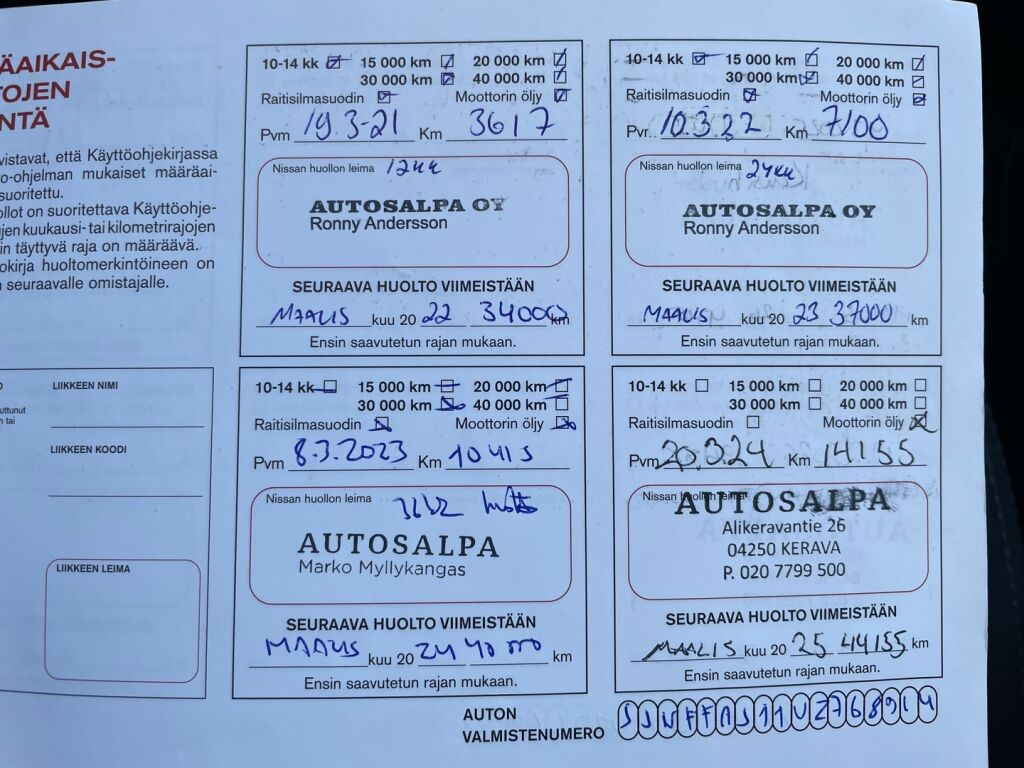 ÄAIKAIS-
TOJEN
NTÄ
vistavat, että Käyttöohjekirjassa
o-ohjelman mukaiset määräai-
suoritettu.
ollot on suoritettava Käyttöohje-
jen kuukausi- tai kilometrirajojen
in täyttyvä raja on määräävä.
okirja huoltomerkintöineen on
seuraavalle omistajalle.
10-14 kk 15 000 km 20 000 km
30 000 km 40 000 km
Raitisilmasuodin Moottorin öljy
Pvm 19.3-21 Km 3617
Nissan huollon leima 12kk
AUTOSALPA OY
Ronny Andersson
SEURAAVA HUOLTO VIIMEISTÄÄN
MAALIS kuu 20 22 34000 km
Ensin saavutetun rajan mukaan.
10-14 kk 15 000 km 20 000 km
30 000 km 40 000 km
Raitisilmasuodin Moottorin öljy
Pvr.. 10.3.22 Km 7100
Nissan huollon leima 24kk
AUTOSALPA OY
Ronny Andersson
SEURAAVA HUOLTO VIIMEISTÄÄN
MAALIS kuu 20 23 37000 km
Ensin saavutetun rajan mukaan.
uttunut
n tai
LIIKKEEN NIMI
LIIKKEEN KOODI
LIIKKEEN LEIMA
10-14 kk 15 000 km 20 000 km
30 000 km 40 000 km
Raitisilmasuodin Moottorin öljy
Pvm 8.3.2023 Km 10415
Nissan huollon leima
AUTOSALPA
Marko Myllykangas
SEURAAVA HUOLTO VIIMEISTÄÄN
MAALIS kuu 20 24 40 000 km
Ensin saavutetun rajan mukaan.
10-14 kk 15 000 km 20 000 km
30 000 km 40 000 km
Raitisilmasuodin Moottorin öljy
Pvm 20.3.24 Km 14155
Nissan huollon leima
AUTOSALPA
Alikeravantie 26
04250 KERAVA
P. 020 7799 500
SEURAAVA HUOLTO VIIMEISTÄÄN
MAALIS kuu 20 25 44155 km
Ensin saavutetun rajan mukaan.
AUTON
VALMISTENUMERO